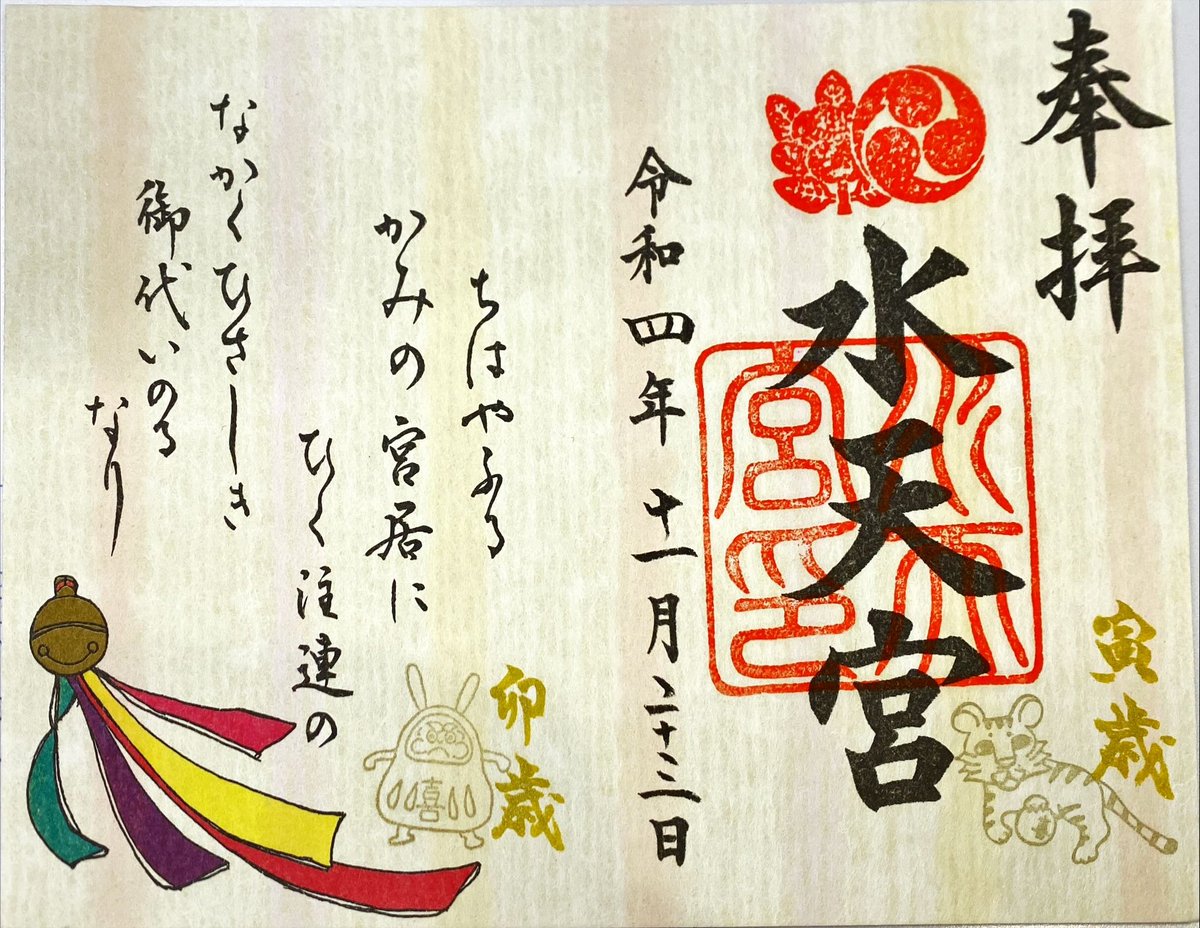 奉拝
寅歳
水天宮
水天宮印
令和四年十一月二十三日
卯歳
喜
ちはやふる
かみの宮居に
ひく注連の
なかくひさしき
御代いのる
なり